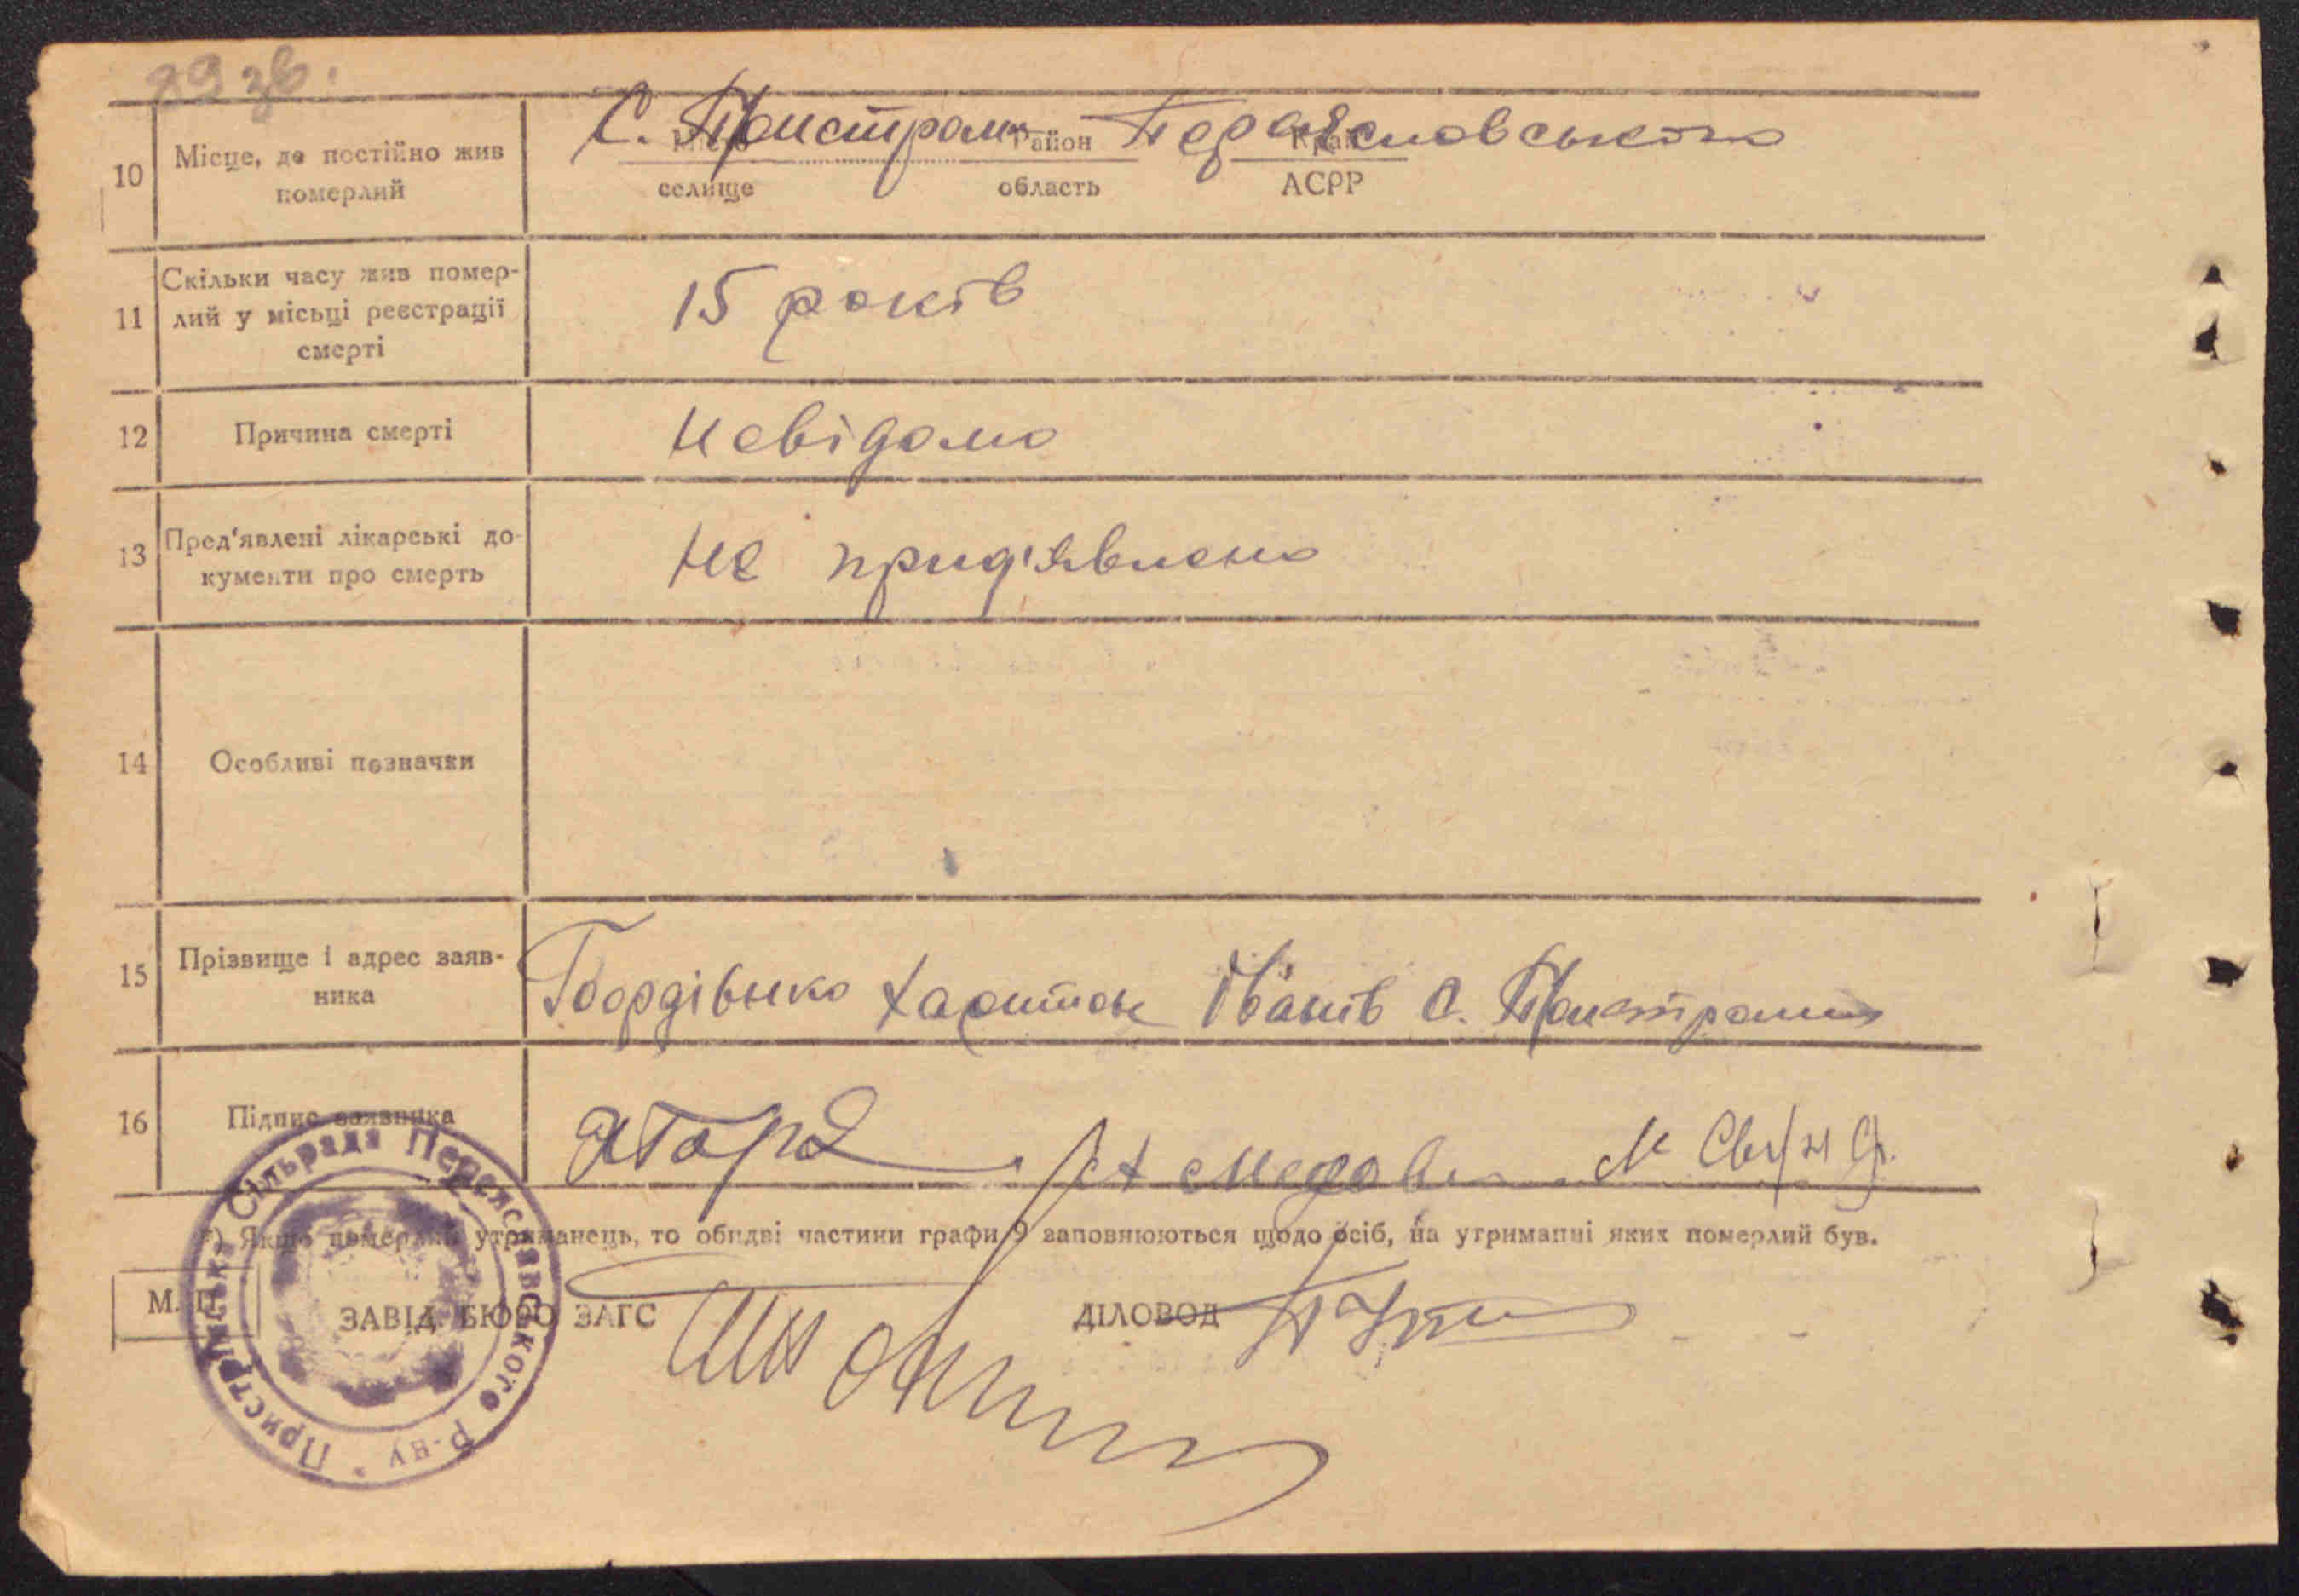 29 зв.
10 Місце, де постійно жив
померлий
С. Пристроми Переяславського
Місто Район Край
селище область АСРР
11 Скільки часу жив помер-
лий у місьці реєстрації
смерті
15 років
12 Причина смерті
Невідомо
13 Пред'явлені лікарські до-
кументи про смерть
не придъявлено
14 Особливі позначки
15 Прізвище і адрес заяв-
ника
Гоордівенко Харитон Іванів С. Пристроми
16 Підпис заявника
*) Якщо померлий утриманець, то обидві частини графи 9 заповнюються щодо осіб, на утриманні яких померлий був.
М. П.
ЗАВІД. БЮРО ЗАГС
ДІЛОВОД
Пристрімська Сільрада Переяславського Р-ну *